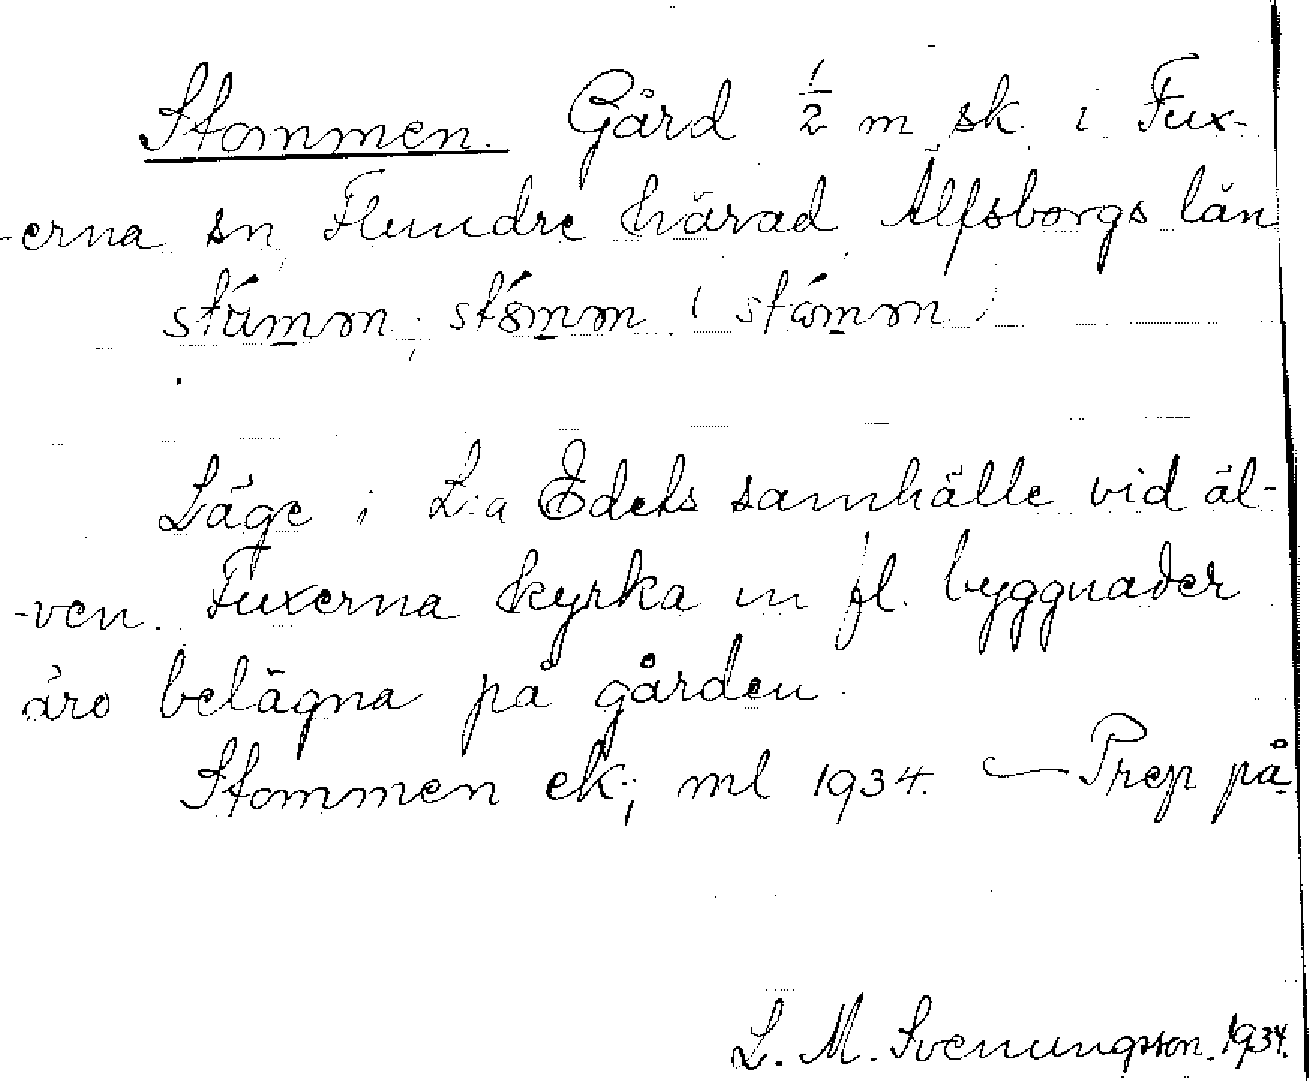 Stommen. Gård ½ m sk. i Fux-
-erna sn, Flundre härad, Älfsborgs län
stämm
Läge i L:a Edets samhälle vid äl-
-ven. Fuxerna kyrka m fl. byggnader
äro belägna på gården.
Stommen ek; ml 1934. — Prep på
L. M. Svenungsson. 1934.